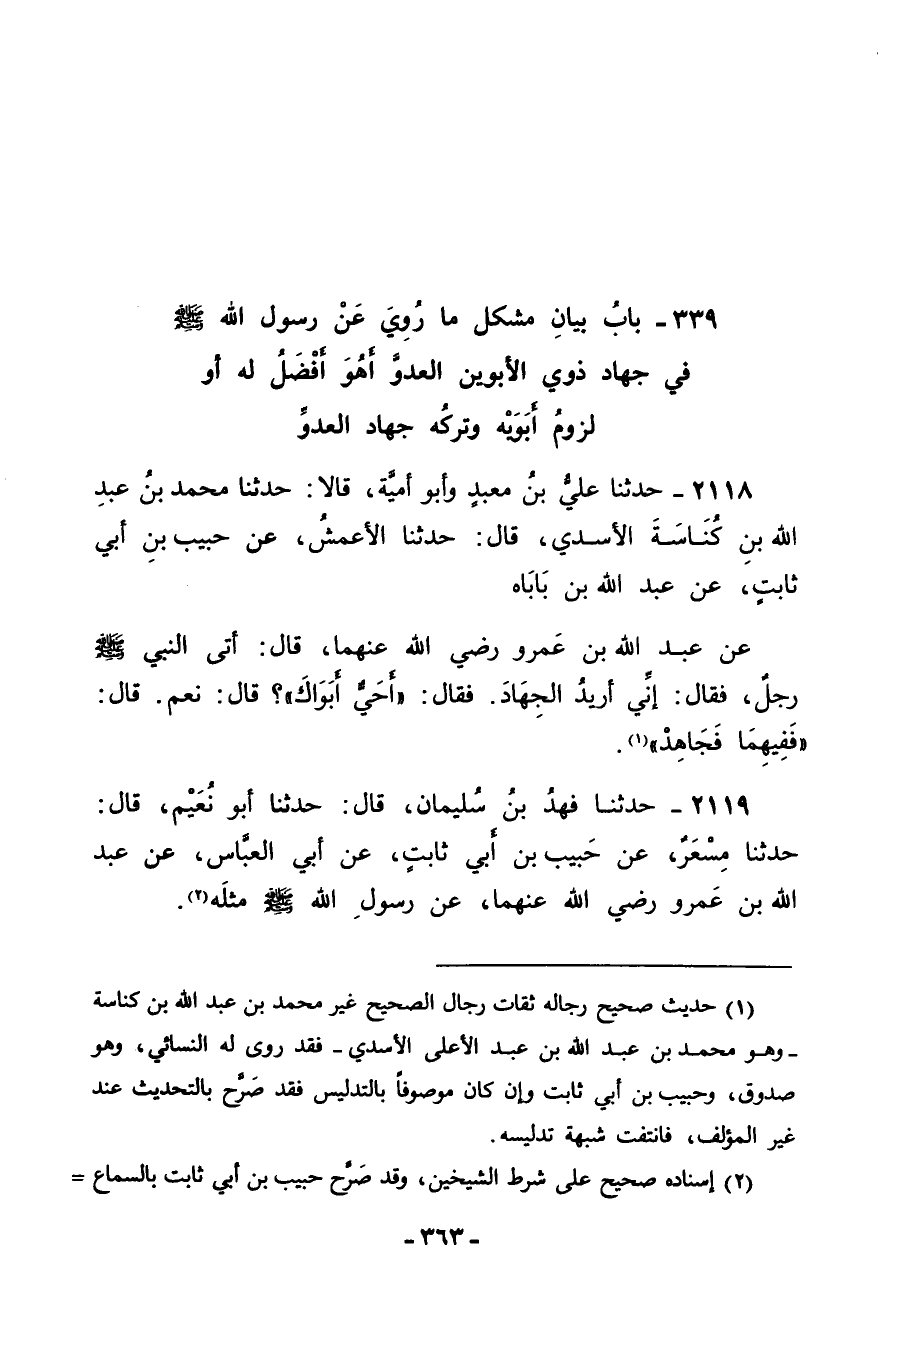 ٣٣٩ ـ بابُ بيانِ مشكل ما رُوِيَ عَنْ رسول الله ﷺ
في جهاد ذوي الأبوين العدوَّ أَهُوَ أَفْضَلُ له أو
لزومُ أَبَوَيْه وتركُه جهاد العدوِّ
٢١١٨ ـ حدثنا عليُّ بنُ معبدٍ وأبو أميَّة، قالا: حدثنا محمد بنُ عبدِ
الله بنِ كُنَاسَةَ الأسدي، قال: حدثنا الأعمشُ، عن حبيب بنِ أبي
ثابتٍ، عن عبد الله بن بَابَاه
عن عبد الله بن عَمرو رضي الله عنهما، قال: أتى النبي ﷺ
رجلٌ، فقال: إنِّي أريدُ الجِهَادَ. فقال: «أَحَيٌّ أَبَوَاكَ»؟ قال: نعم. قال:
«فَفِيهِمَا فَجَاهِدْ»(١).
٢١١٩ ـ حدثنا فهدُ بنُ سُليمان، قال: حدثنا أبو نُعَيْم، قال:
حدثنا مِسْعَرٌ، عن حَبيب بن أَبي ثابتٍ، عن أبي العبَّاس، عن عبد
الله بن عَمرو رضي الله عنهما، عن رسولِ الله ﷺ مثلَه(٢).
(١) حديث صحيح رجاله ثقات رجال الصحيح غير محمد بن عبد الله بن كناسة
ـ وهو محمد بن عبد الله بن عبد الأعلى الأسدي ـ فقد روى له النسائي، وهو
صدوق، وحبيب بن أبي ثابت وإن كان موصوفاً بالتدليس فقد صَرَّح بالتحديث عند
غير المؤلف، فانتفت شبهة تدليسه.
(٢) إسناده صحيح على شرط الشيخين، وقد صَرَّح حبيب بن أبي ثابت بالسماع =
ـ ٣٦٣ ـ